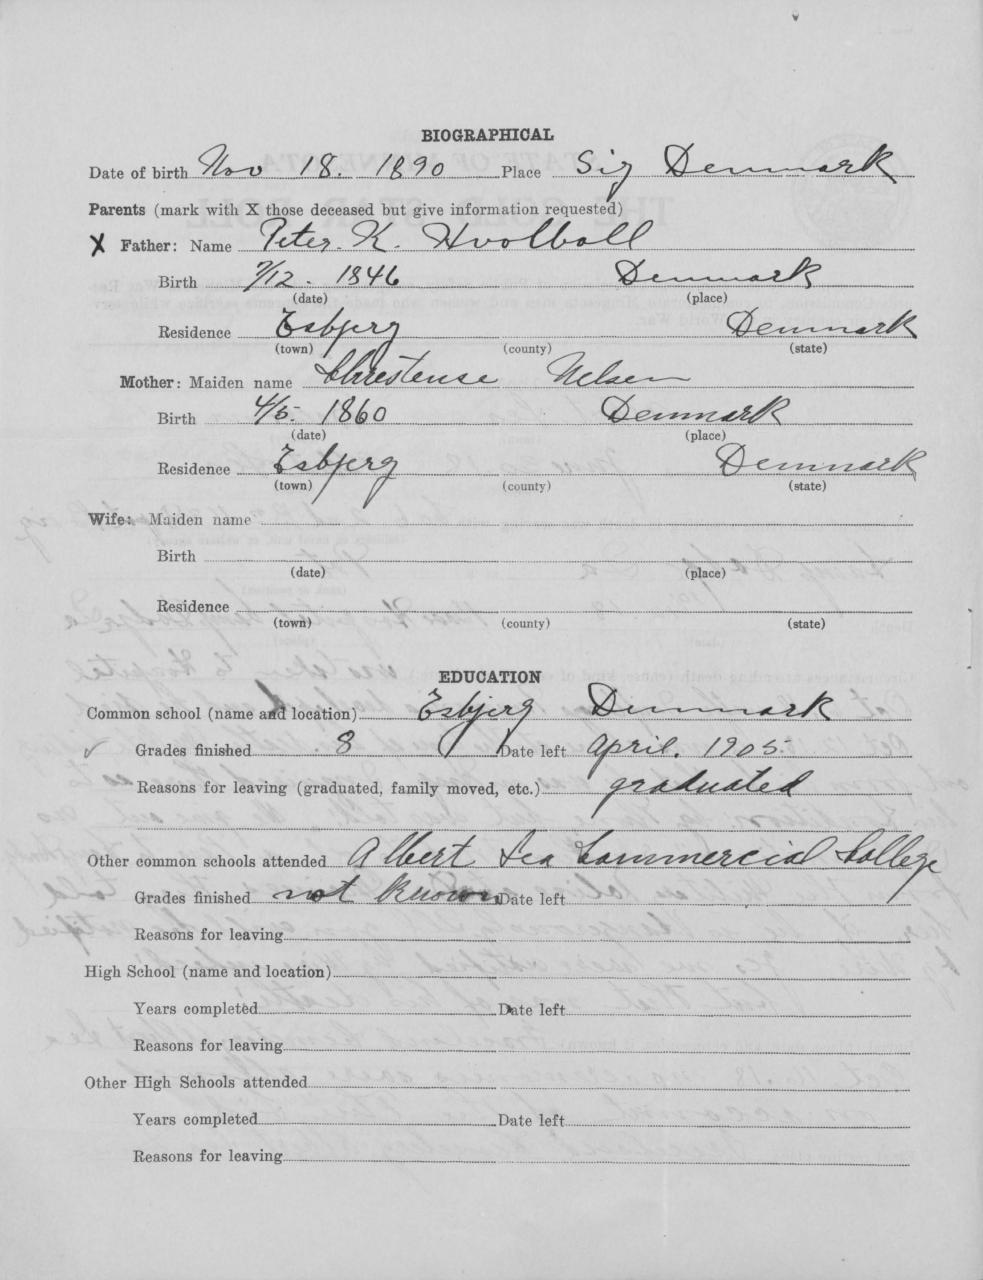 BIOGRAPHICAL
Date of birth Nov 18. 1890 Place Sig Denmark
Parents (mark with X those deceased but give information requested)
X Father: Name Peter. K. Hvolboll
Birth 7/12. 1846 Denmark
(date) (place)
Residence Esbjerg Denmark
(town) (county) (state)
Mother: Maiden name Christense Nelsen
Birth 4/5. 1860 Denmark
(date) (place)
Residence Esbjerg Denmark
(town) (county) (state)
Wife: Maiden name
Birth
(date) (place)
Residence
(town) (county) (state)
EDUCATION
Common school (name and location) Esbjerg Denmark
Grades finished 8 Date left April. 1905.
Reasons for leaving (graduated, family moved, etc.) graduated
Other common schools attended Albert Lea Commercial College
Grades finished not known Date left
Reasons for leaving
High School (name and location)
Years completed Date left
Reasons for leaving
Other High Schools attended
Years completed Date left
Reasons for leaving